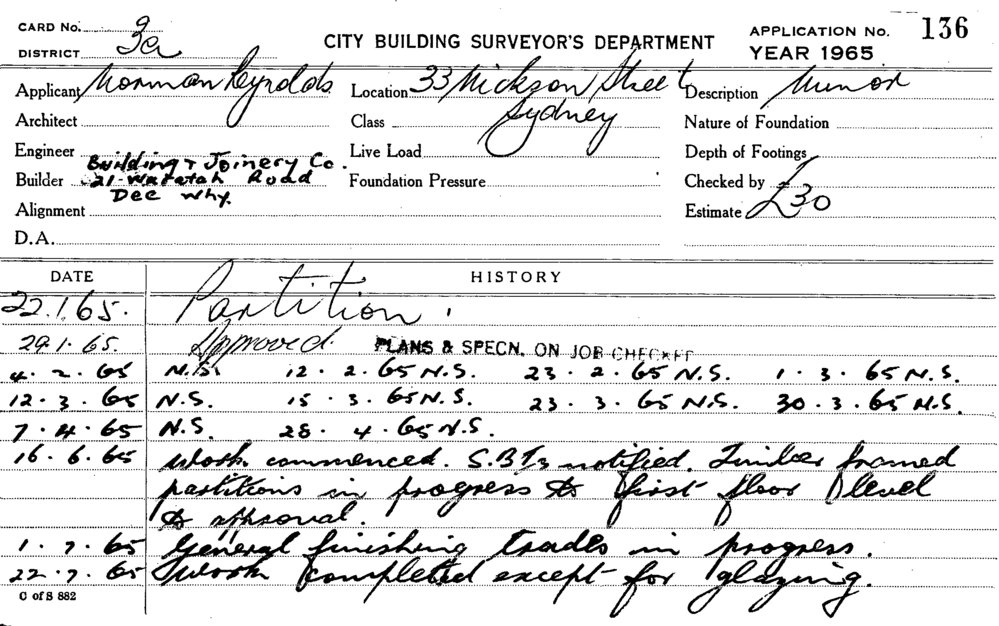 CARD No. 9
DISTRICT 3a
CITY BUILDING SURVEYOR'S DEPARTMENT
APPLICATION No. 136
YEAR 1965
Applicant Norman Reynolds
Location 33 Hickson Street Sydney
Description Minor
Architect
Class
Nature of Foundation
Engineer
Live Load
Depth of Footings
Builder Building & Joinery Co.
21 Waratah Road
Dee Why.
Foundation Pressure
Checked by
Alignment
Estimate £30
D.A.
DATE HISTORY
22.1.65. Partition.
29.1.65. Approved. PLANS & SPECN. ON JOB CHECKED
4.2.65 N.S. 12.2.65 N.S. 23.2.65 N.S. 1.3.65 N.S.
12.3.65 N.S. 15.3.65 N.S. 23.3.65 N.S. 30.3.65 N.S.
7.4.65 N.S. 28.4.65 N.S.
16.6.65 Work commenced. notified. Timber framed
partitions in progress to first floor level
to approval.
1.7.65 General finishing trades in progress.
22.7.65 Work completed except for glazing.
C of S 882